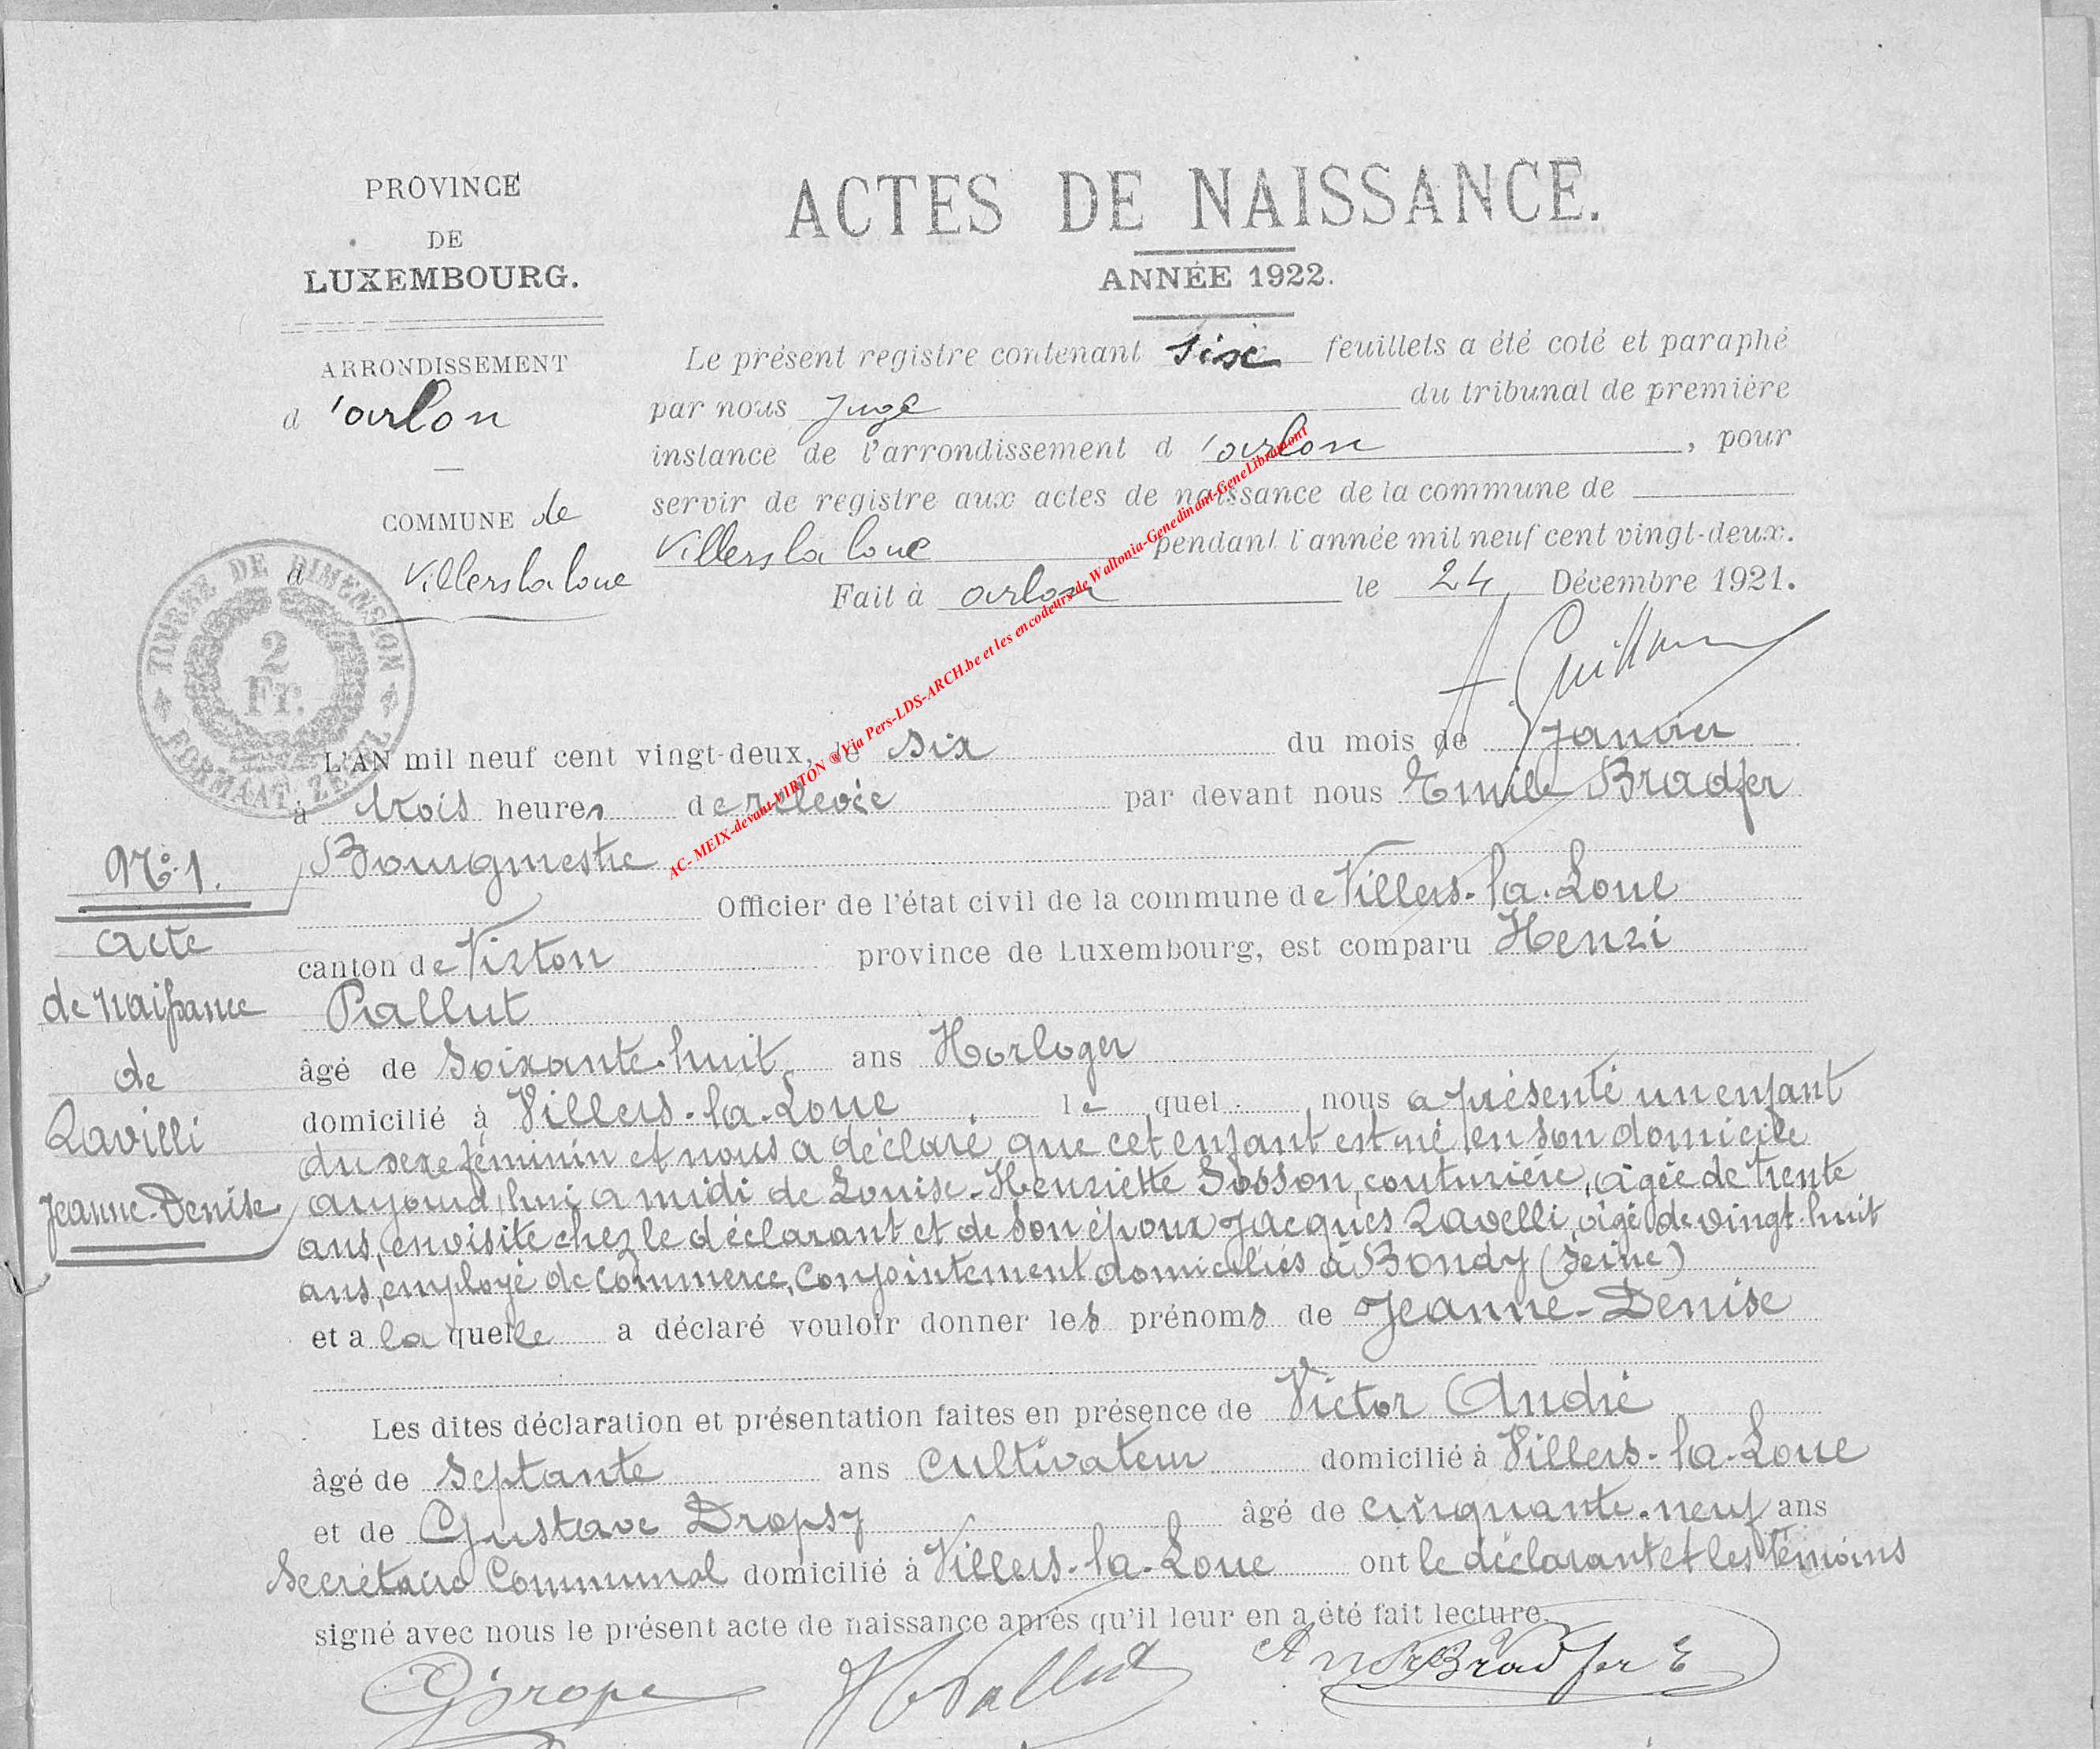 PROVINCE
DE
LUXEMBOURG.
ARRONDISSEMENT
d 'arlon
COMMUNE de
d Villers la loue
TIMBRE DE DIMENSION
2
Fr.
FORMAAT ZEGEL
ACTES DE NAISSANCE.
ANNÉE 1922.
Le présent registre contenant sise feuillets a été coté et paraphé
par nous Juge du tribunal de première
instance de l'arrondissement d 'arlon, pour
servir de registre aux actes de naissance de la commune de
Villers la loue pendant l'année mil neuf cent vingt-deux.
Fait à arlon le 24 Décembre 1921.
AC- MEIX-devant-VIRTON @ Via Pers-LDS-ARCH.be et les encodeurs de Wallonia-Genedinant-GeneLibramont
L'AN mil neuf cent vingt-deux, le six du mois de Janvier
à trois heures de relevée par devant nous Emile Bradfer
Bourgmestre
Officier de l'état civil de la commune de Villers-la-Loue
canton de Virton province de Luxembourg, est comparu Henri
Pallut
âgé de soixante-huit ans Horloger
domicilié à Villers-la-Loue, le quel nous a présenté un enfant
du sexe féminin et nous a déclaré que cet enfant est né en son domicile
aujourd'hui a midi de Louise-Henriette Sosson, couturière, âgée de trente
ans, en visite chez le déclarant et de son époux Jacques Ravelli, âgé de vingt-huit
ans, employé de commerce, conjointement domiciliés à Bondy (Seine)
et a la quelle a déclaré vouloir donner les prénoms de Jeanne-Denise
Les dites déclaration et présentation faites en présence de Victor André
âgé de septante ans cultivateur domicilié à Villers-la-Loue
et de Gustave Dropsy âgé de cinquante-neuf ans
Secrétaire Communal domicilié à Villers-la-Loue ont le déclarant et les témoins
signé avec nous le présent acte de naissance après qu'il leur en a été fait lecture.
H Pallut Bradfer E
No. 1.
Acte
de naissance
de
Ravilli
Jeanne-Denise